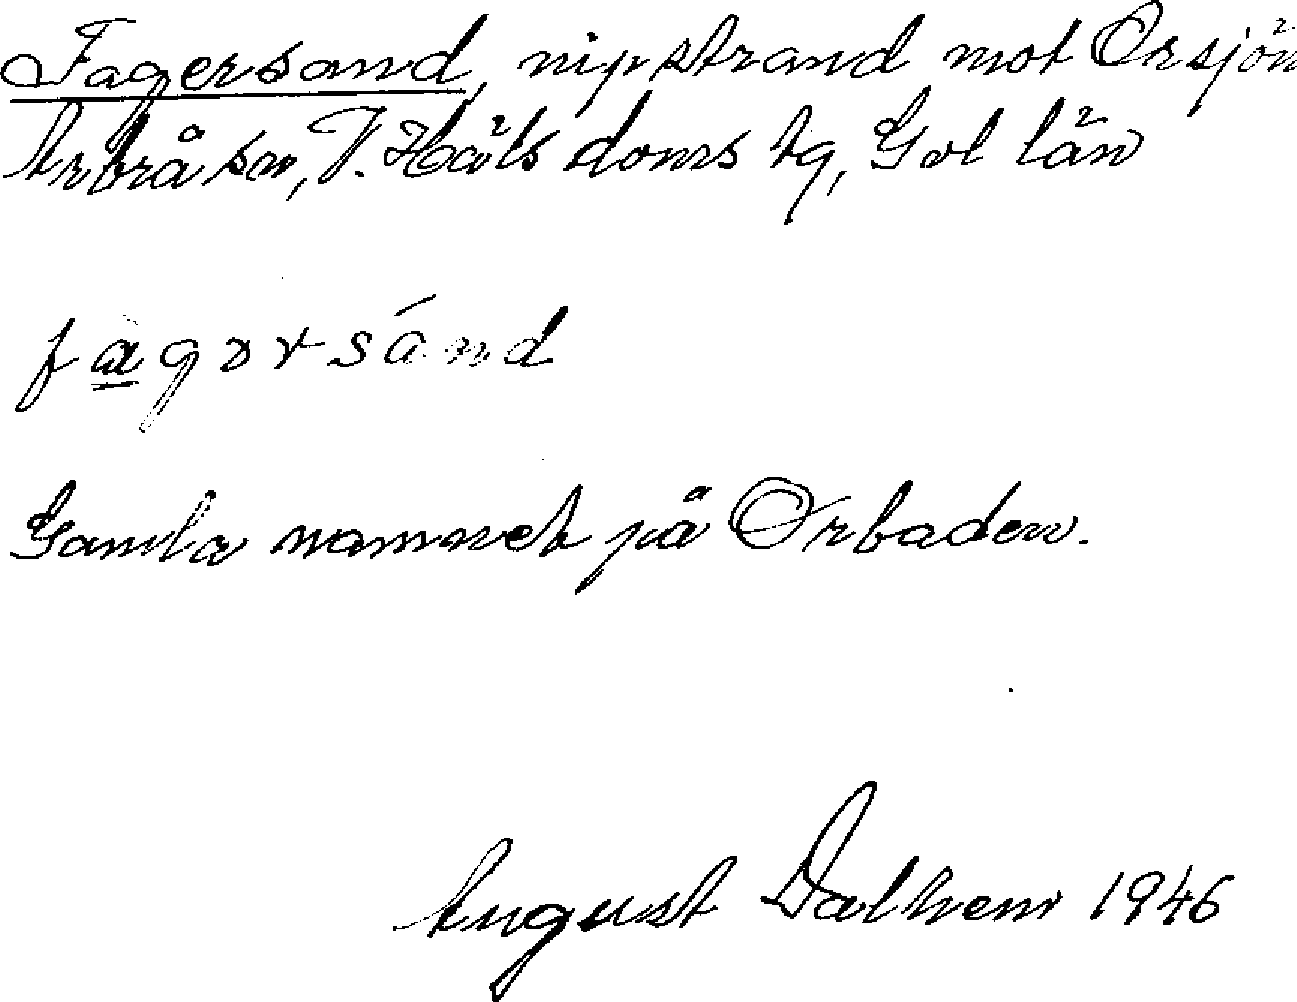 Fagersand, nipstrand mot Orsjön
Arbrå sn, V. Häls doms tg, Gvl län
fa̲gərsánd
Gamla namnet på Orbaden.
August Dalhem 1946